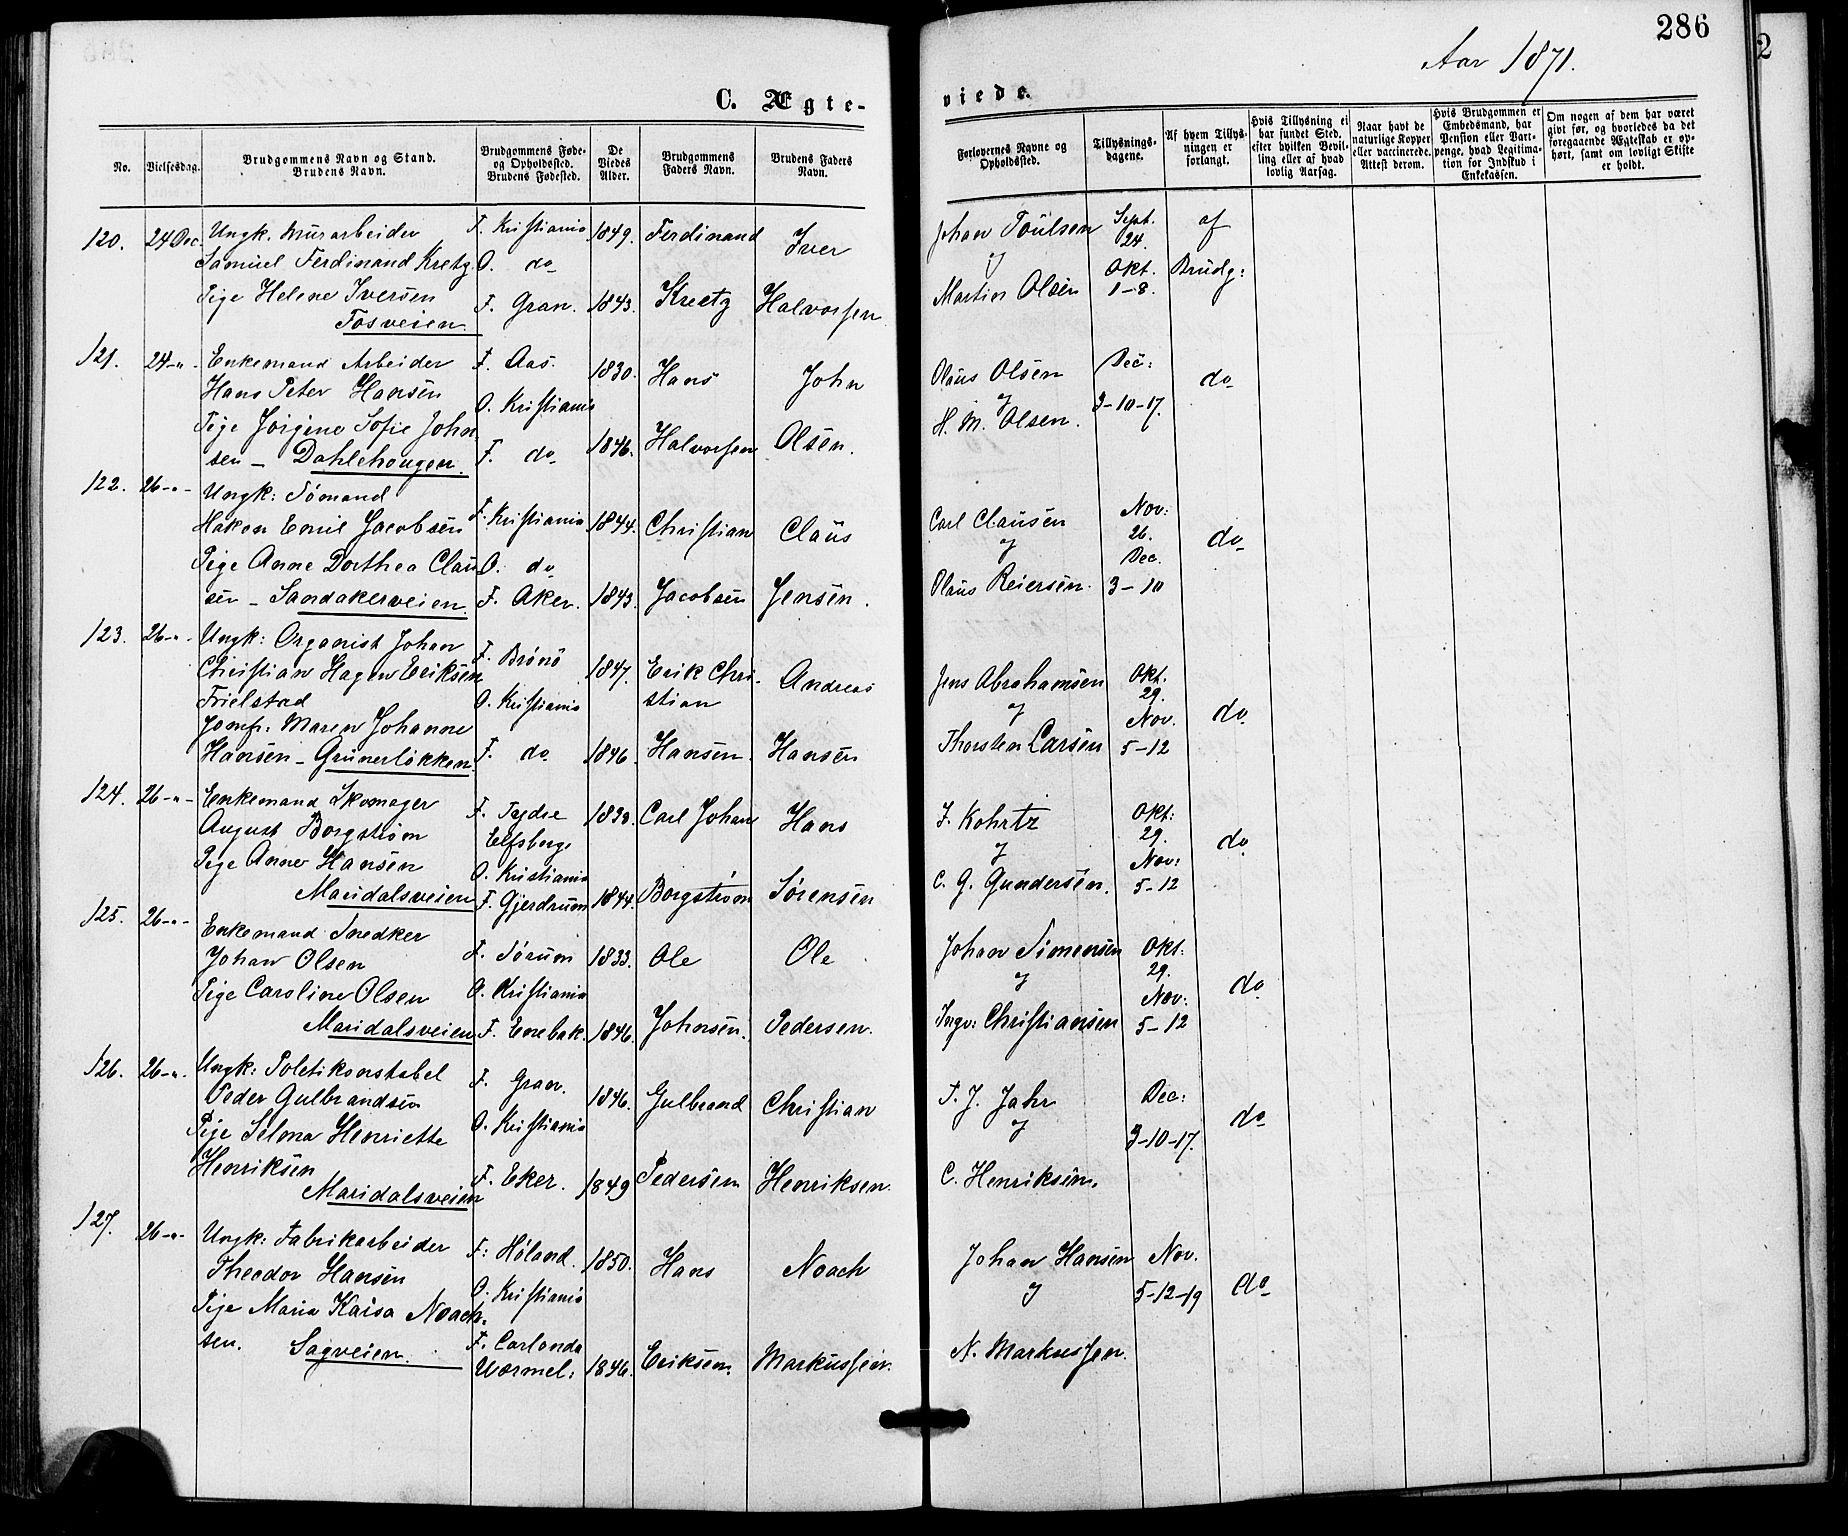 286
Aar 1871.
C. Ægte-
viede.
No.
Vielsesdag.
Brudgommens Navn og Stand.
Brudens Navn.
Brudgommens Føde-
og Opholdssted.
Brudens Fødested.
De
Viedes
Alder.
Brudgommens
Faders Navn.
Brudens Faders
Navn.
Forlovernes Navne og
Opholdssted.
Tillysnings-
dagene.
Af hvem Tillys-
ningen er
forlangt.
Hvis Tillysning ei
har fundet Sted,
efter hvilken Bevil-
ling eller af hvad
lovlig Aarsag.
Naar havt de
naturlige Kopper
eller vaccinerede.
Attest derom.
Hvis Brudgommen er
Embedsmand, har
Pension eller Vart-
penge, hvad Legitima-
tion for Indskud i
Enkekassen.
Om nogen af dem har været
givt før, og hvorledes da det
foregaaende Ægteskab er op-
hørt, samt om lovligt Skifte
er holdt.
120. 24 Dec. Ungk. Murarbeider F. Kristiania 1849. Ferdinand Iver Johan Poulsen Sept. 24. af
Samuel Ferdinand Kretz. O. do
Pige Helene Iversen F. Gran. 1843. Kretz Halvorsen Martin Olsen Okt. 1-8. Brudg:
Fosveien
121. 24-"- Enkemand Arbeider F. Aas. 1830. Hans John Olaus Olsen Dec: do
Hans Peter Hansen O. Kristiania og 3-10-17.
Pige Jørgine Sofie John F. do 1846. Halvorsen Olsen. H. M. Olsen.
sen - Dahlehougen.
122. 26-"- Ungk: Sømand F. Kristiania 1844. Christian Claus Carl Clausen Nov: 26. do
Hakon Emil Jacobsen og Dec.
Pige Anne Dorthea Clau O. do
sen - Sandakerveien F. Aker. 1843. Jacobsen Jensen. Olaus Reiersen. 3-10
123. 26-"- Ungk: Organist Johan F. Brønø 1847. Erik Chri- Andreas Jens Abrahamsen Okt. 29. do
Christian Hagen Eriksen stian og
Frielstad O. Kristiania Nov.
Jomfr. Maren Johanne
Hansen - Grünerløkken. F. do 1846. Hansen. Hansen Thorsten Larsen 5-12
124. 26-"- Enkemand Skomager F. Sydre 1838. Carl Johan Hans J. Kohrtz Okt: 29. do
August Borgstrøm Elfsborgs og
Pige Anne Hansen O. Kristiania Nov:
Maridalsveien F. Gjerdrum 1844. Borgstrøm Sørensen C. G. Gundersen. 5-12
125. 26-"- Enkemand Snedker F. Sørum 1833. Ole Ole Johan Simensen Okt: 29. do
Johan Olsen O. Kristiania og
Pige Caroline Olsen Nov:
Maridalsveien F. Enebak. 1846. Johnsen. Pedersen. Ingv: Christiansen 5-12
126. 26-"- Ungk: Politikonstabel F. Gran. 1846. Gulbrand Christian T. J. Jahr Dec: do
Peder Gulbrandsen O. Kristiania og 3-10-17.
Pige Selma Henriette
Henriksen F. Eker. 1849 Pedersen Henriksen. C. Henriksen.
Maridalsveien
127. 26-"- Ungk: Fabrikarbeider F: Høland. 1850. Hans Noach Johan Hansen Nov. do
Theodor Hansen O. Kristiania og 5-12-19
Pige Maria Kaisa Noach-
sen. Sagveien. F. Carlanda
Wærmel: 1846. Eriksen. Markussen. N. Markussen.